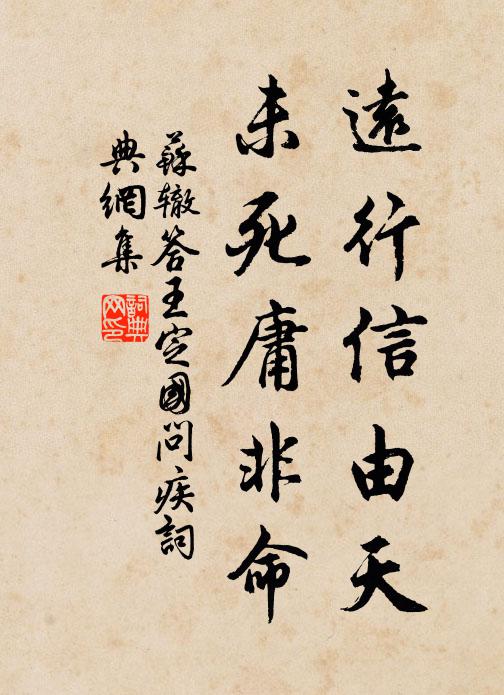 遠行信由天
未死庸非命
蘇辙答王定國問疾詞
典網集
詞典
网印